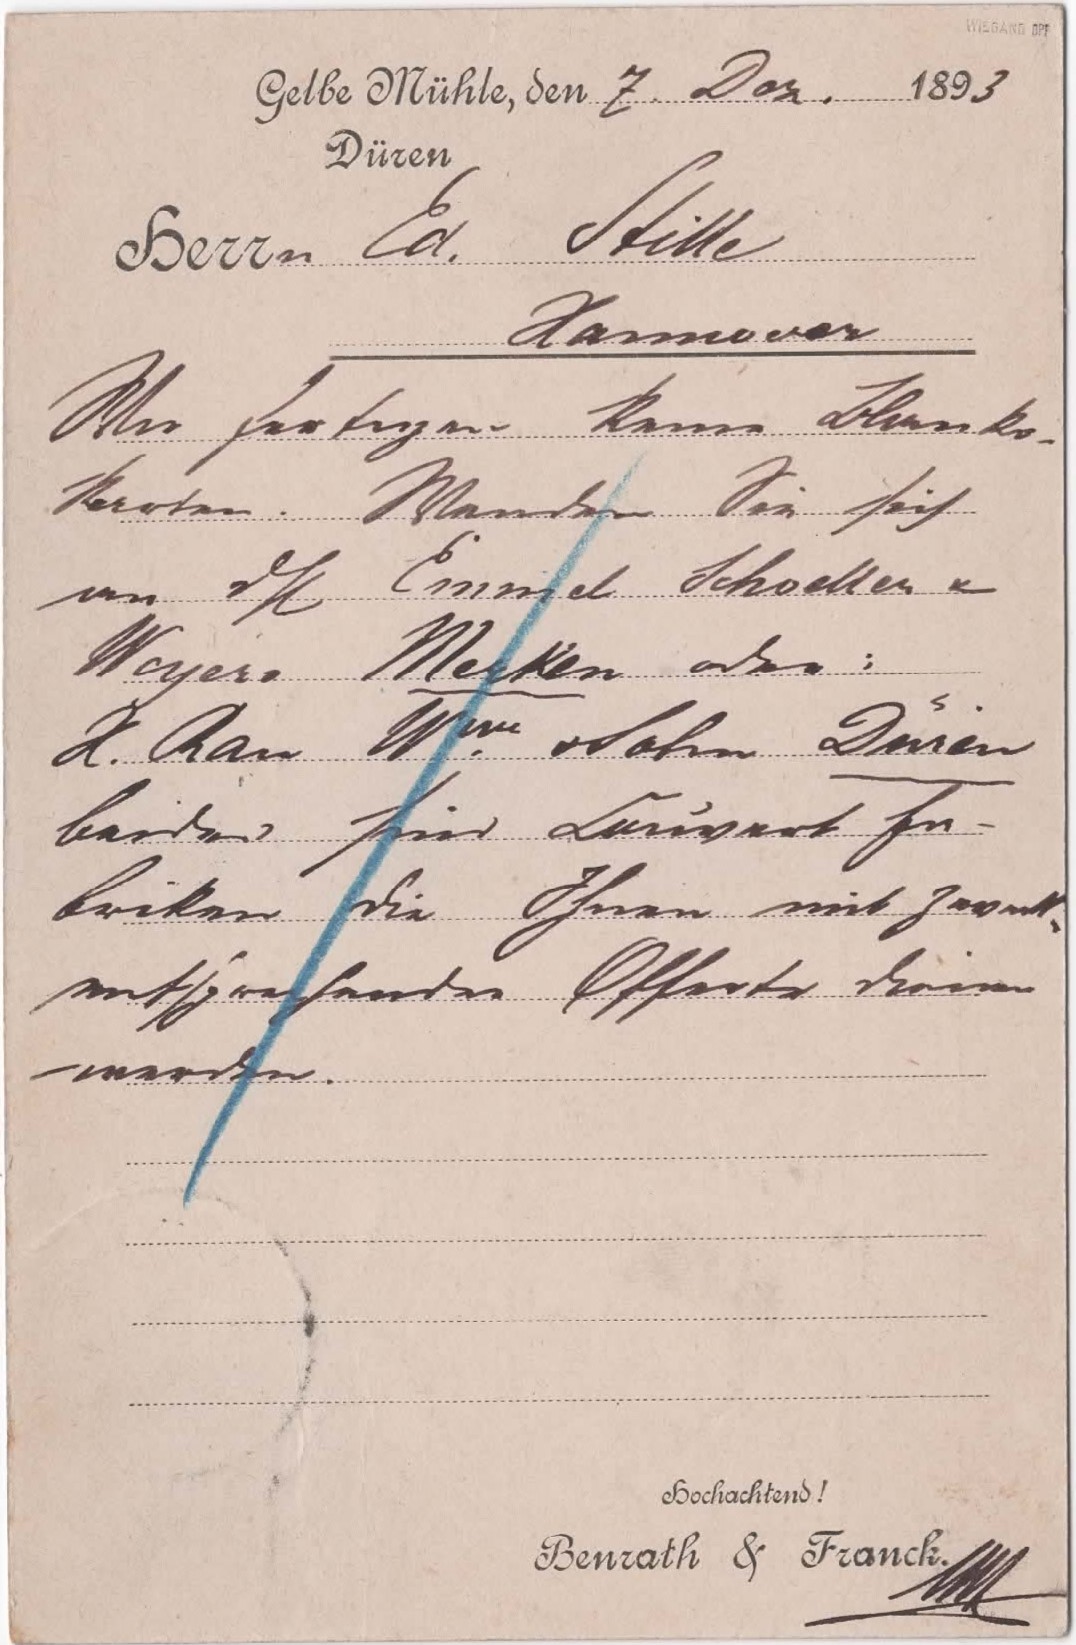 WIEGAND BPP
Gelbe Mühle, den 7. Dez. 1893
Düren
Herrn Ed. Stille
Hannover
Wir fertigen keine Blanko-
karten. Wenden Sie sich
an Emmel Schoeller &
Weyers Merken oder:
H. Rau Wwe & Sohn Düren
beides sind Couvert Fa-
briken die Ihnen mit zweck-
entsprechender Offerte dienen
werden.
Hochachtend!
Benrath & Franck.